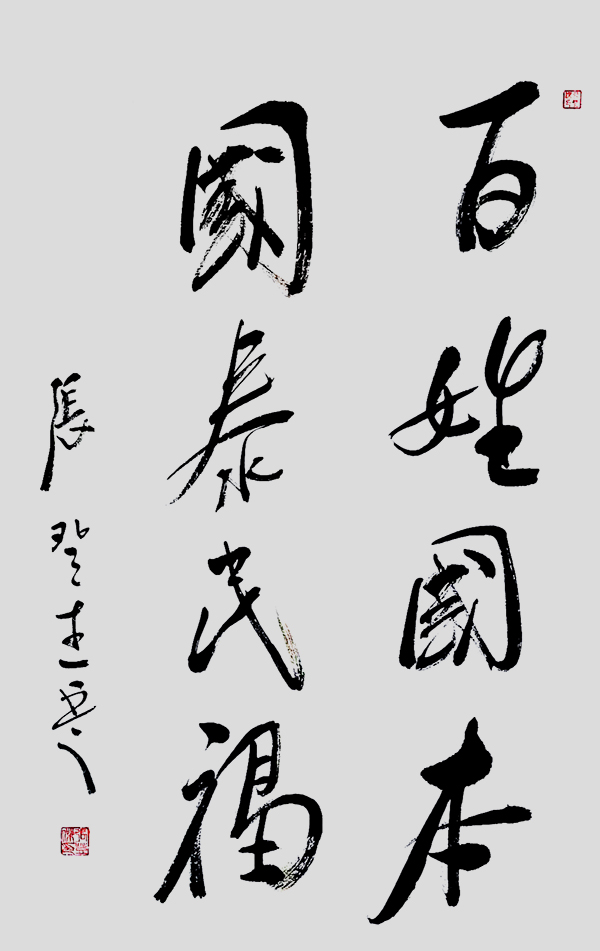 百姓國本
國泰民福
張登